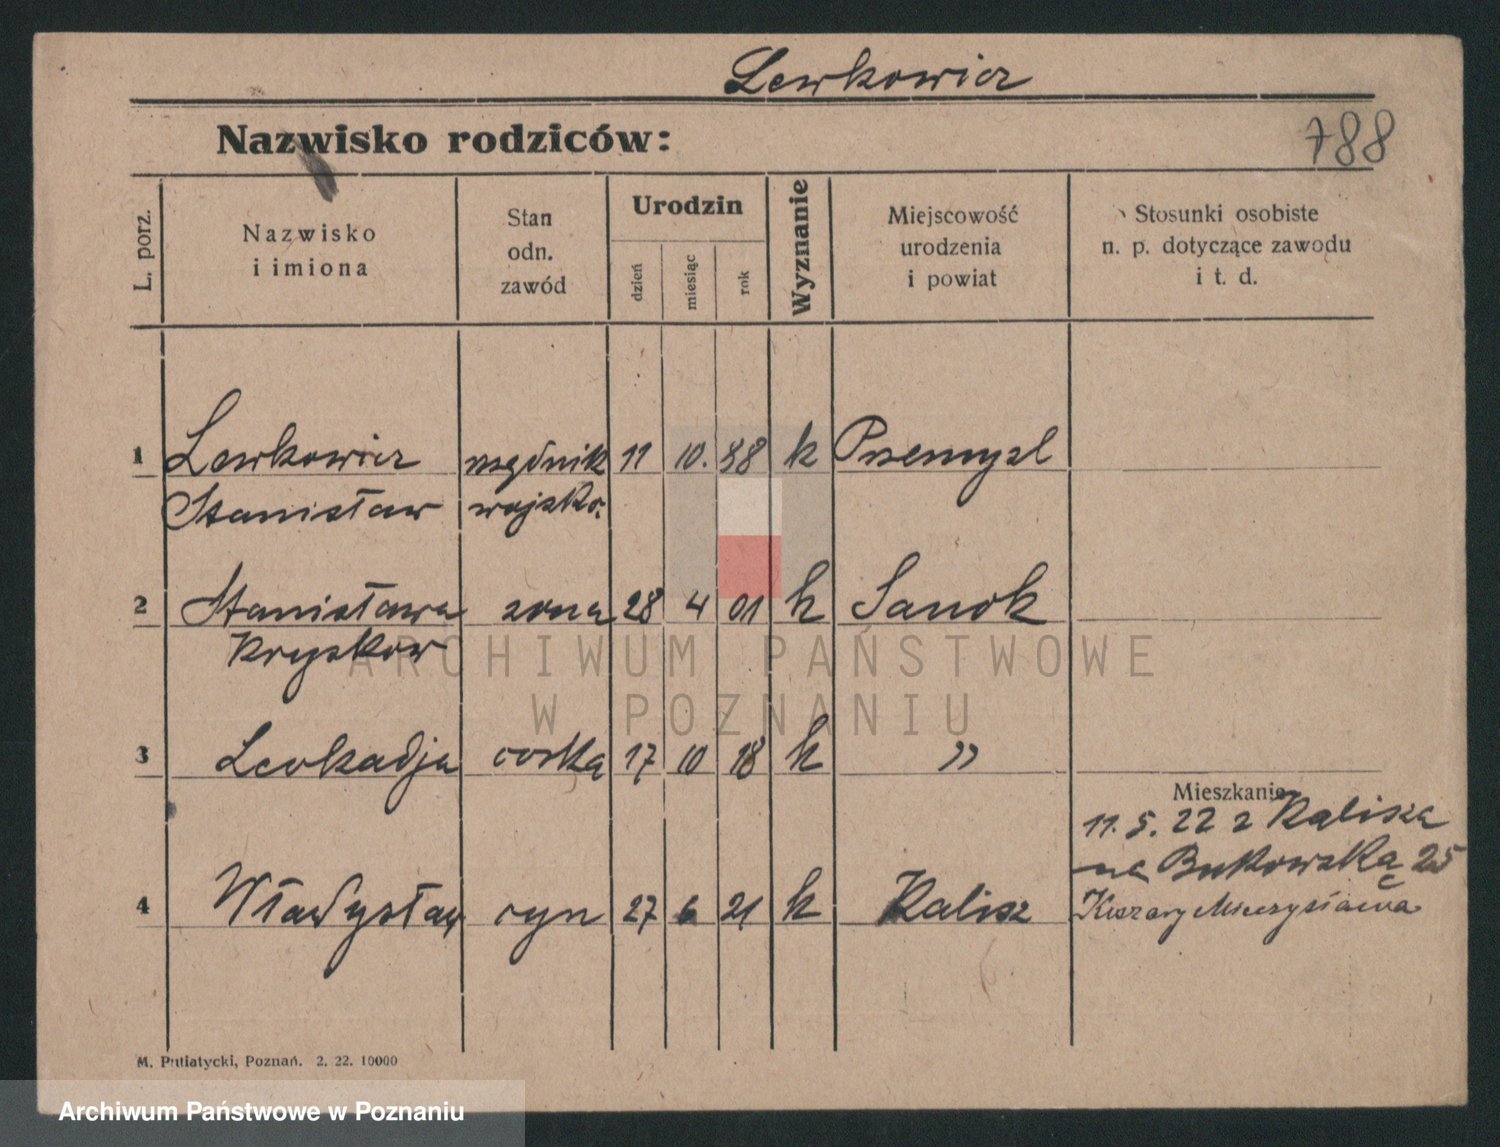 Lewkowicz
Nazwisko rodziców:
788
L. porz.
Nazwisko
i imiona
Stan
odn.
zawód
Urodzin
dzień
miesiąc
rok
Wyznanie
Miejscowość
urodzenia
i powiat
Stosunki osobiste
n. p. dotyczące zawodu
i t. d.
1 Lewkowicz urzędnik 11 10. 88 k Przemysl
Stanisław wojsko.
2 Stanisława zona 28 4 01 k Sanok
Kryskow
3 Leokadja corka 17 10 18 k "
Mieszkanie
11. 5. 22 z Kalisza
na Bukowską 25
4 Władysław syn 27 6 21 k Kalisz
Koszary Mieczysława
M. Putiatycki, Poznań. 2. 22. 10000
ARCHIWUM PAŃSTWOWE
W POZNANIU
Archiwum Państwowe w Poznaniu